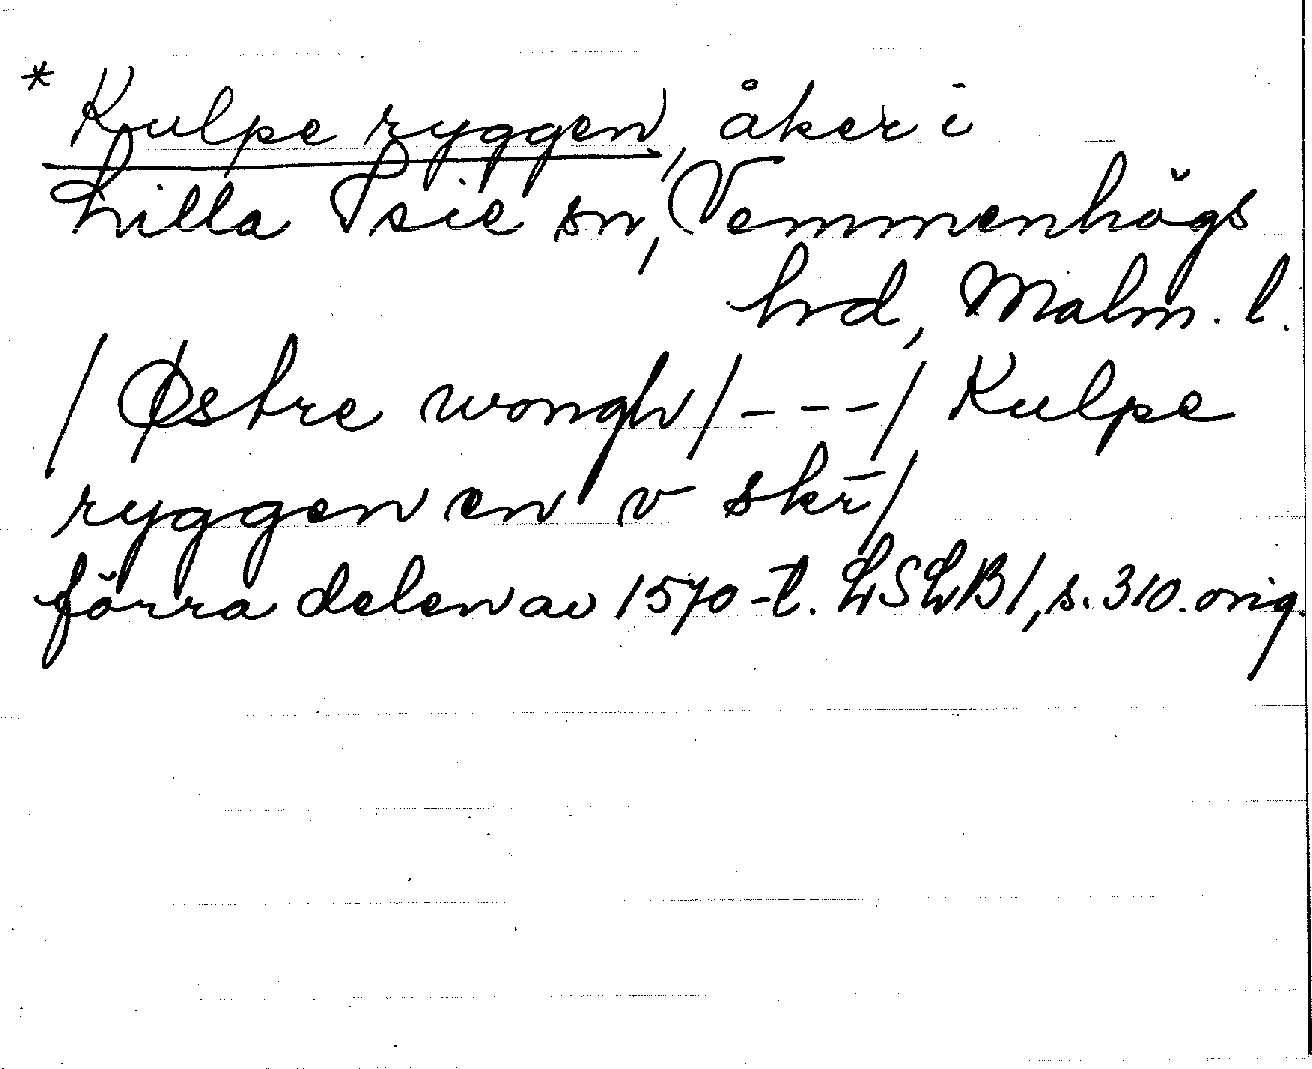 * Kulpe ryggen, åker i
Lilla Isie sn, Vemmenhögs
hrd, Malm. l.
/Østre wongh/---/Kulpe
ryggen en v skr̄/
förra delen av 1570-t. LSLB1, s. 310. orig.